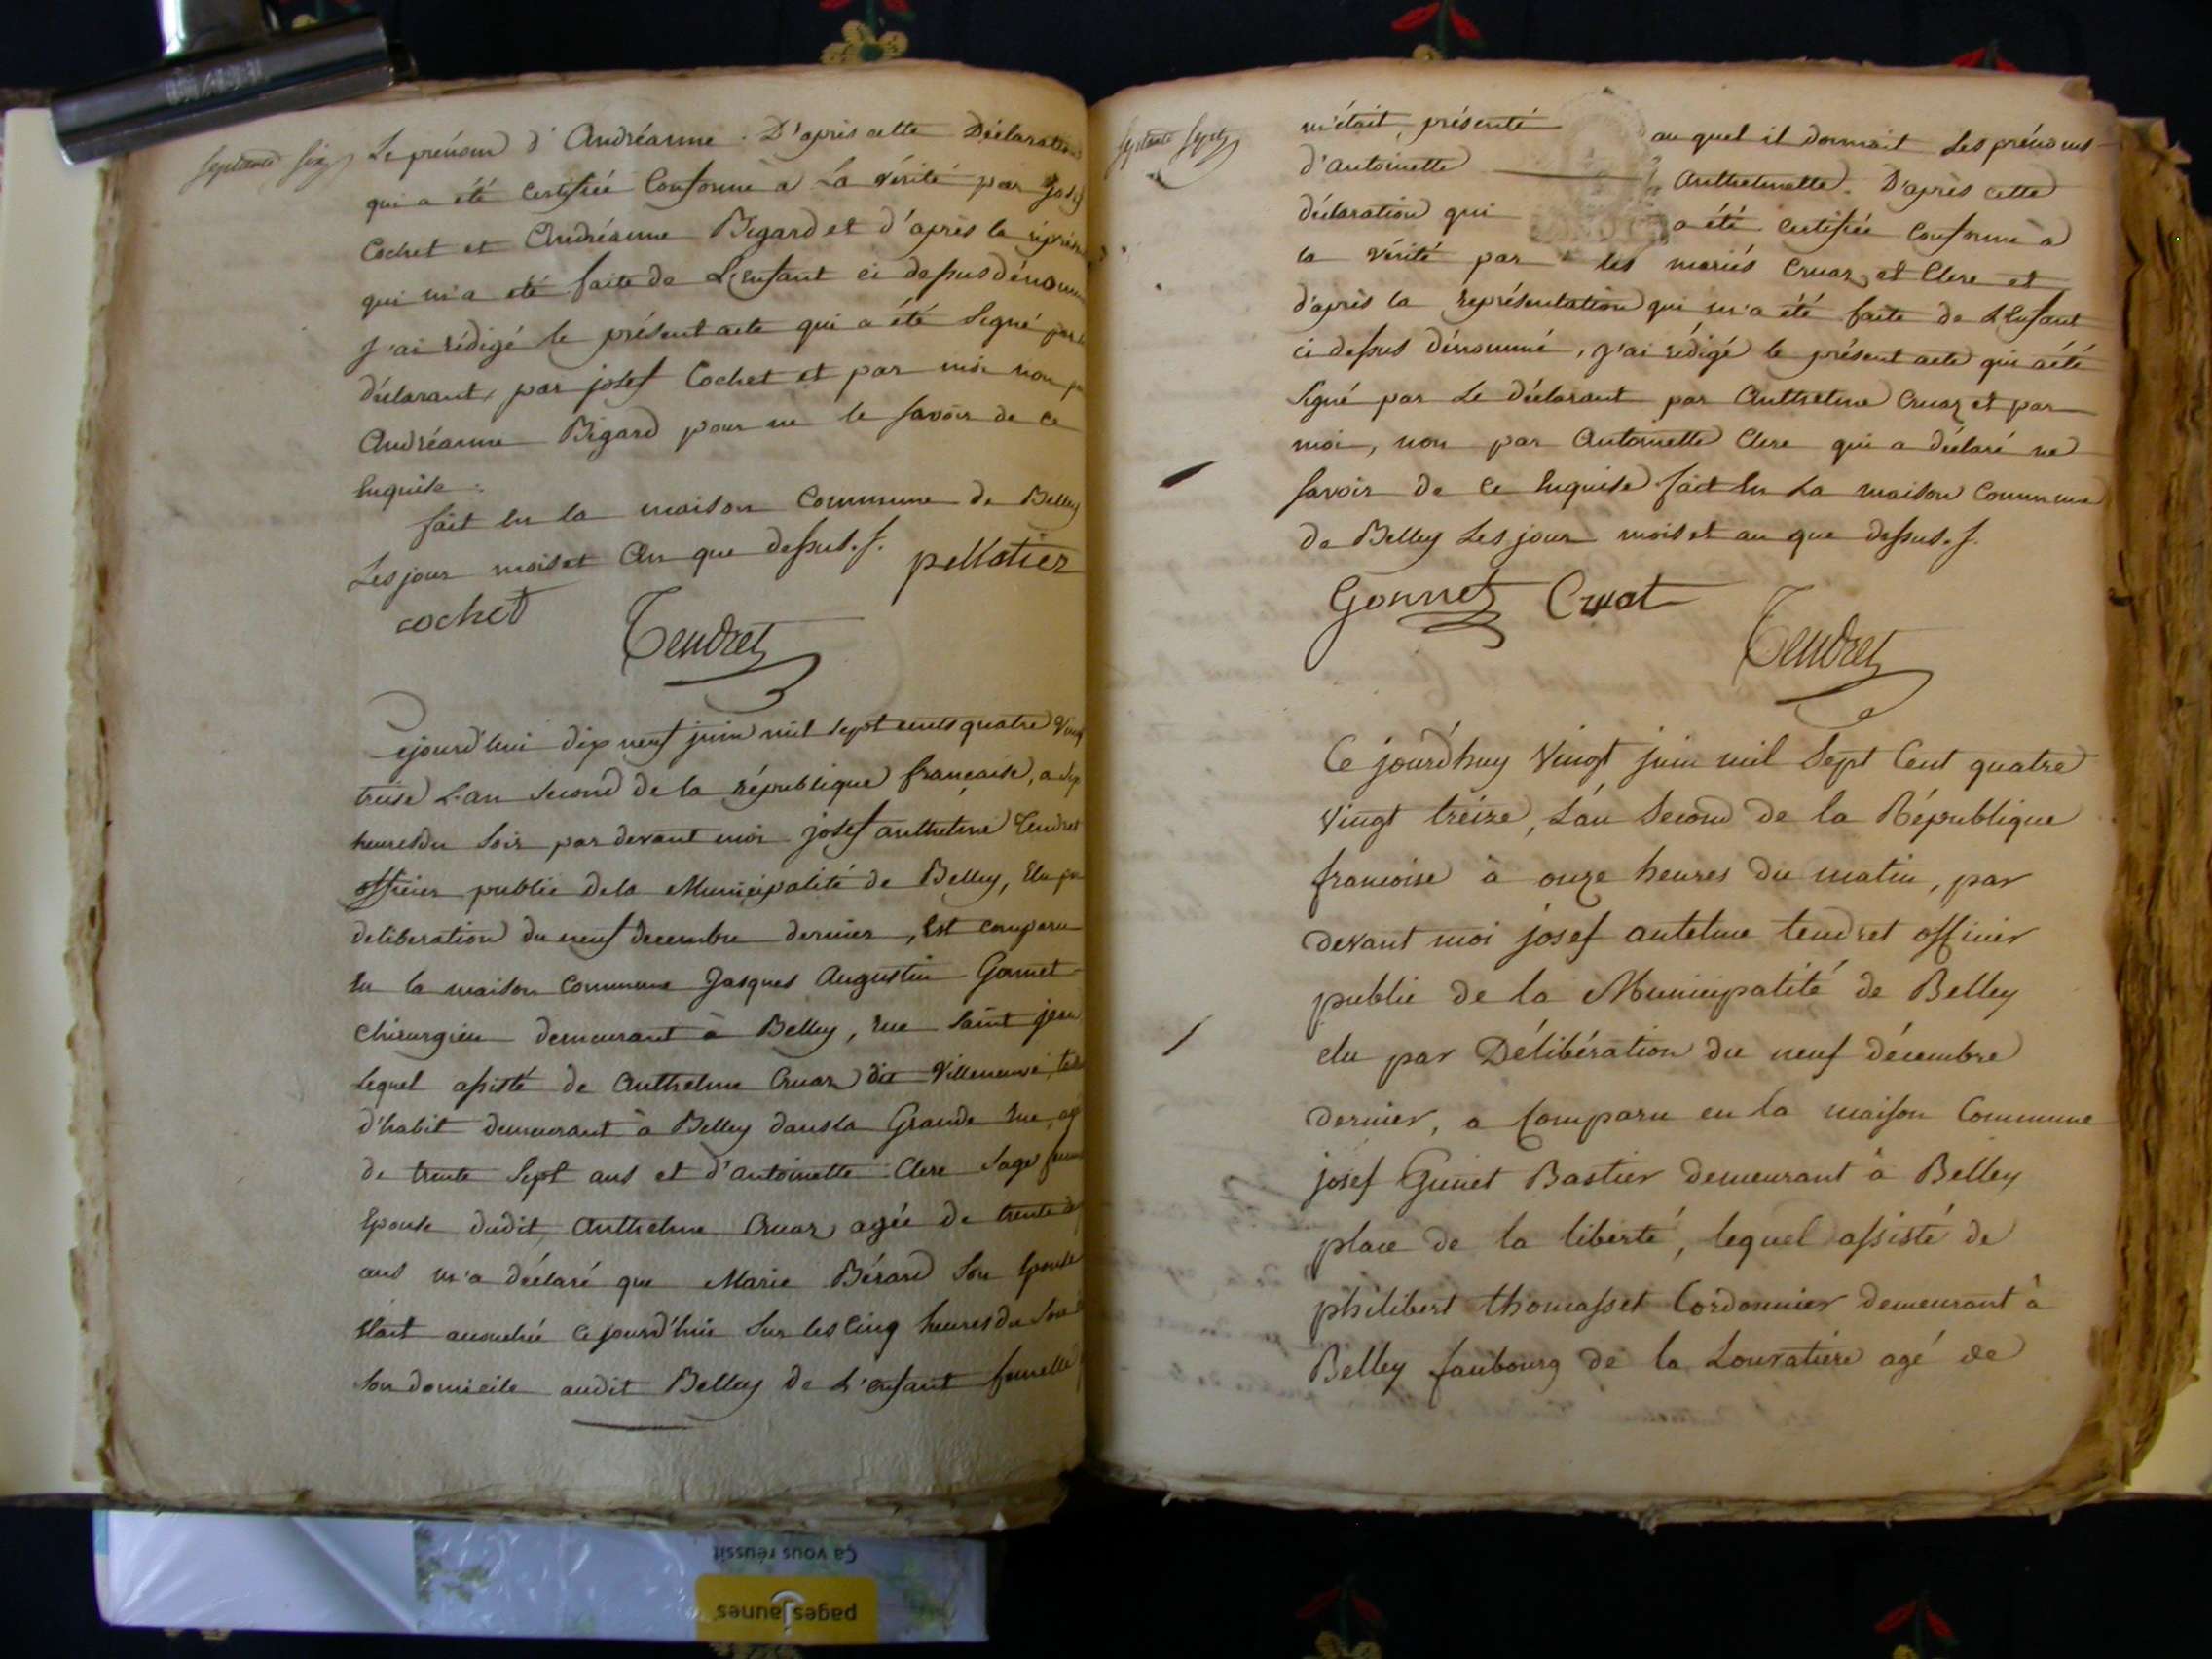 septante six
Le prénom d'Andréanne. D'après cette Déclaration
qui a été certifiée Conforme à La vérité par Josef
Cochet et Andréanne Bigard et d'après la représen
qui m'a été faite de L'Enfant ci dessus dénommé
j'ai rédigé le présent acte qui a été Signé par le
déclarant, par josef Cochet et par moi non par
Andréanne Bigard pour ne le savoir de ce
Enquise.
fait En la maison Commune de Belley
Les jour mois et An que dessus.
pellotier
cochet
Tendret
Cejourd'hui dix neuf juin mil sept cents quatre vingt
treise L'an Second de la république française, a
heures du Soir par devant moi josef anthelme Tendret
officier public de la Municipalité de Belley, Elu par
deliberation du neuf decembre dernier, Est comparu
En la maison Commune Jasques Augustin Gonnet
chirurgien demeurant à Belley, rue Saint jean
Lequel assisté de Anthelme Cruaz dit Villeneuve
d'habit demeurant à Belley dans la Grande Rue, agé
de trente Sept ans et d'antoinette Clerc Sage femme
Epouse dudit Anthelme Cruaz agée de trente
ans m'a déclaré que Marie Bérard Son Epouse
Etait accouchée cejourd'hui Sur les Cinq heures du Soir
Son domicile audit Belley de L'enfant femelle
septante sept
m'était présenté au quel il donnait Les prénoms
d'Antoinette Anthelmette. D'après cette
déclaration qui a été certifiée Conforme à
la vérité par les mariés Cruaz et Clerc et
d'après la représentation qui m'a été faite de L'Enfant
ci dessus dénommé, j'ai rédigé le présent acte qui a été
Signé par Le déclarant par Anthelme Cruaz et par
moi, non par Antoinette Clerc qui a déclaré ne
Savoir de ce Enquise fait En La maison Commune
de Belley Les jour mois et an que dessus.
Gonnet Cruat
Tendret
Ce jourd'huy Vingt juin mil Sept Cent quatre
Vingt treize, L'an Second de la République
francoise à onze heures du matin, par
devant moi josef antelme tendret officier
public de la Municipalité de Belley
elu par Délibération du neuf décembre
dernier, a Comparu en la maison Commune
josef Guinet Bastier demeurant à Belley
place de la liberté, lequel assisté de
philibert thomasset Cordonnier demeurant à
Belley faubourg de la Louvatiere agé de
Ça vous réussit
pagesJaunes